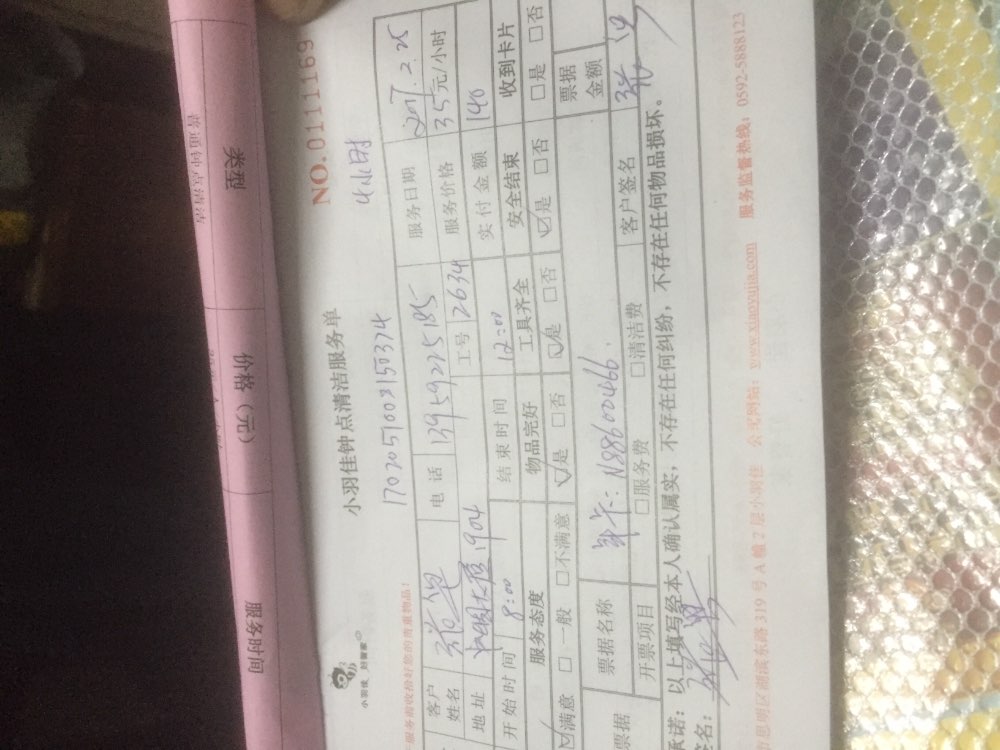 类型
价格（元）
服务时间
普通钟点清洁
NO.0111169
小羽佳钟点清洁服务单
4小时
小羽佳
服务前收拾好您的贵重物品！
客户姓名
电话 13959225185
服务日期 2017.2.25
地址
1904
工号 2634
服务价格 35元/小时
开始时间 8:00
结束时间 12:00
实付金额 140
服务态度
物品完好
工具齐全
安全结束
收到卡片
☑满意 □一般 □不满意
☑是 □否
☑是 □否
☑是 □否
□是 □否
票据
票据名称
年卡：N88600466.
票据金额
开票项目
□服务费
□清洁费
客户签名
承诺：以上填写经本人确认属实，不存在任何纠纷，不存在任何物品损坏。
签名：
思明区湖滨东路319号A幢2层小羽佳 公司网站：www.xiaoyujia.com 服务监督热线：0592-5888123